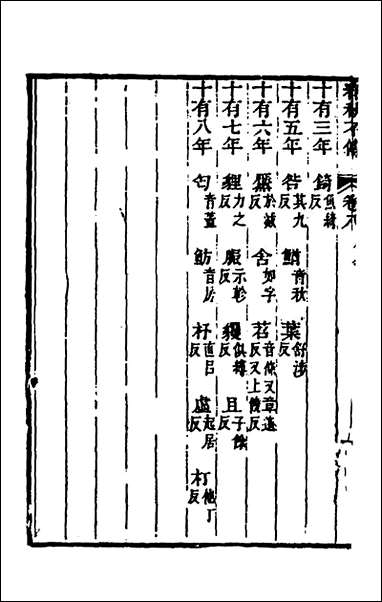 十有三年　錡魚綺反
十有五年　咎其九反　鰌音秋　葉舒涉反
十有六年　黶於減反　舍如字　苕音條又章遙反又上饒反
十有七年　貍力之反　脤市軫反　貜俱縛反　且子餘反
十有八年　匄音蓋　魴音房　杼直呂反　虛起居反　朾他丁反